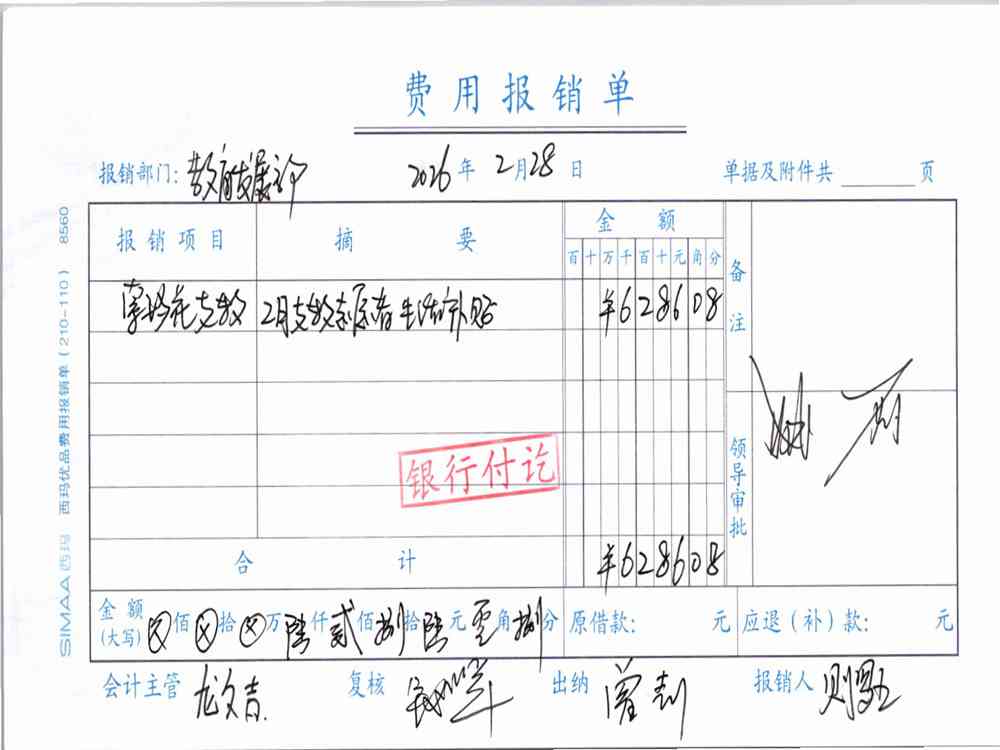 费用报销单
报销部门: 教育发展部 2026年2月28日 单据及附件共 页
报销项目 摘要 金额 备注
百十万千百十元角分
支教 2月支教志愿者生活补贴 ¥628608
银行付讫
领导审批
合计 ¥628608
金额(大写) ⊗佰⊗拾⊗万陆仟贰佰捌拾陆元零角捌分 原借款: 元 应退(补)款: 元
会计主管 龙文吉 复核 出纳 报销人
SIMAA西玛 西玛优品费用报销单(210-110) 8560